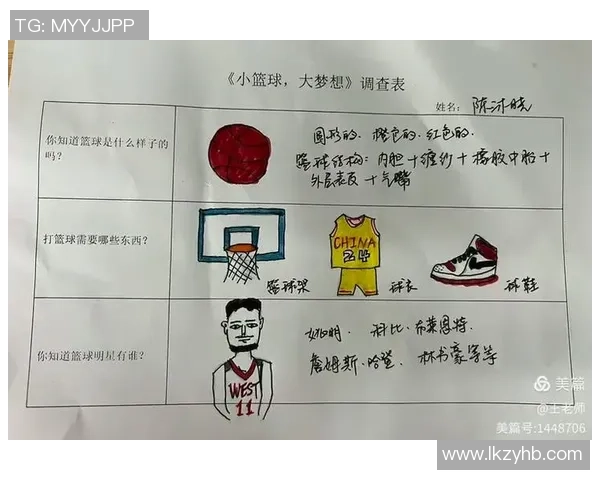 TG: MYYJJPP
《小篮球，大梦想》调查表
姓名：陈沐晓
你知道篮球是什么样子的
吗？
圆形的、橙色的、红色的.
篮球结构：内胆＋缠纱＋橡胶中胎＋
外层表皮＋气嘴
打篮球需要哪些东西？
CHINA
24
篮球架
球衣
球鞋
你知道篮球明星有谁？
姚明、科比·布莱恩特、
詹姆斯·哈登、林书豪等等
WEST
11
美篇
@王老师
美篇号:1448706
www.lkzyhb.com